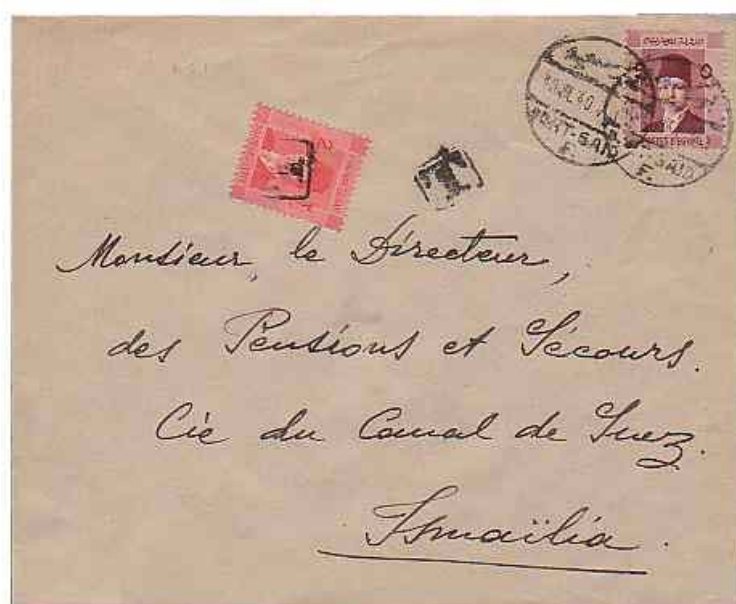 PORT-SAID
T
Monsieur, le Directeur,
des Pensions et Sécours.
Cie du Canal de Suez.
Ismaïlia.